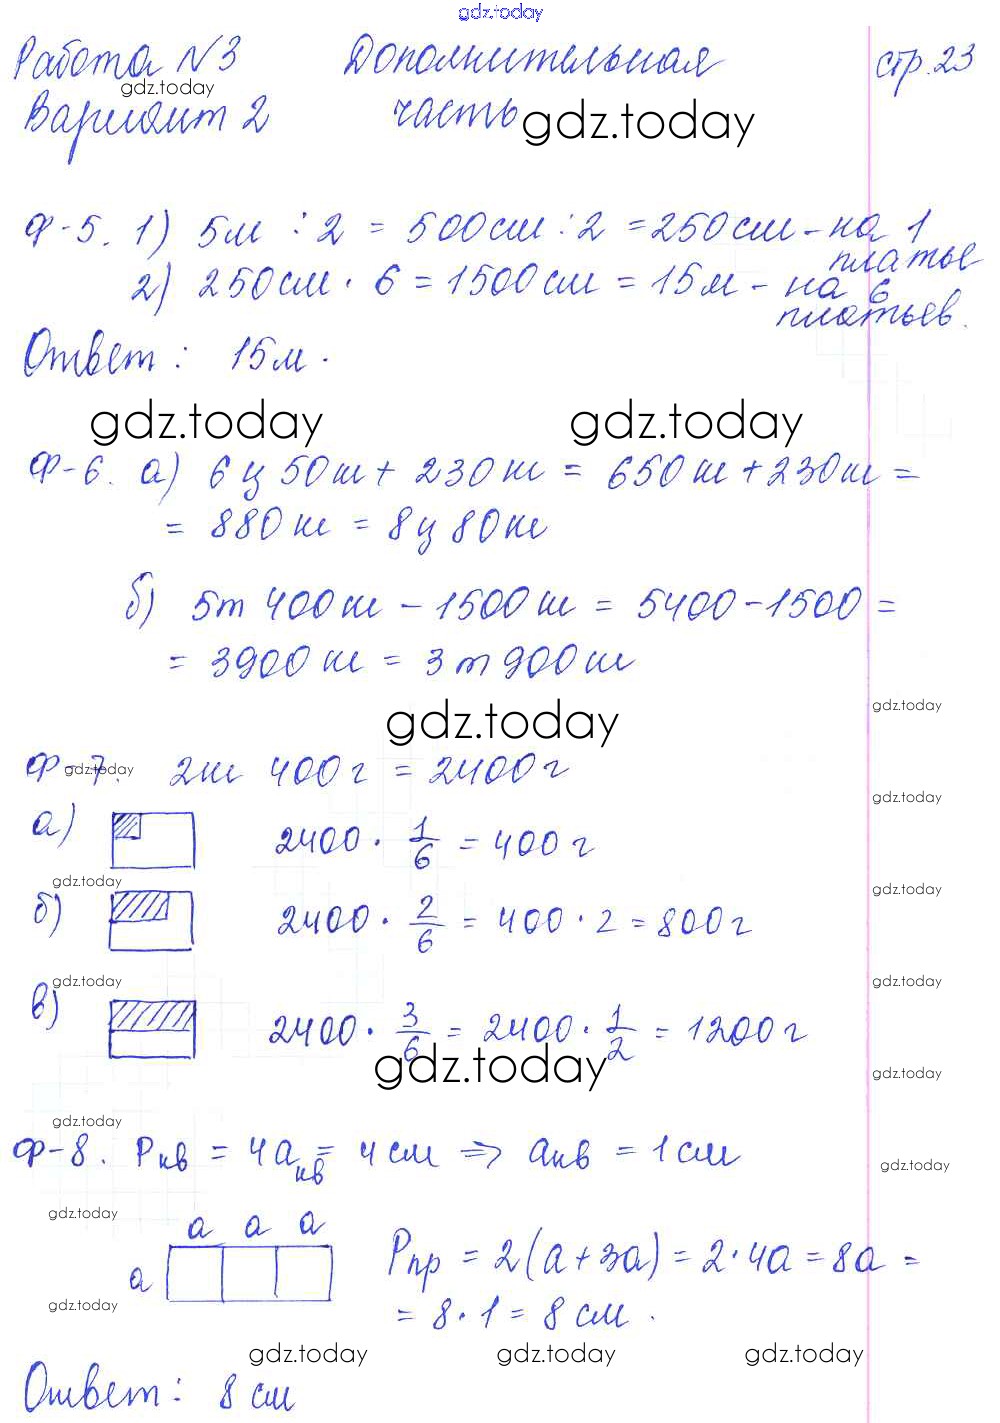 gdz.today
Работа №3 Дополнительная стр. 23
gdz.today
Вариант 2 часть gdz.today
Ф-5. 1) 5м : 2 = 500см : 2 = 250см - на 1
платье
2) 250см · 6 = 1500см = 15м - на 6
платьев.
Ответ: 15м.
gdz.today gdz.today
Ф-6. а) 6ц 50кг + 230кг = 650кг + 230кг =
= 880кг = 8ц 80кг
б) 5т 400кг - 1500кг = 5400 - 1500 =
= 3900кг = 3т 900кг
gdz.today
gdz.today
Ф-7. 2кг 400г = 2400г
gdz.today
gdz.today
а) 2400 · 1/6 = 400г
gdz.today
gdz.today
б) 2400 · 2/6 = 400 · 2 = 800г
gdz.today
gdz.today
в) 2400 · 3/6 = 2400 · 1/2 = 1200г
gdz.today
gdz.today
gdz.today
Ф-8. Pкв = 4aкв = 4см ⇒ aкв = 1см
gdz.today
gdz.today
a a a
a Pпр = 2(a+3a) = 2·4a = 8a =
gdz.today
= 8·1 = 8см.
gdz.today gdz.today gdz.today
Ответ: 8см